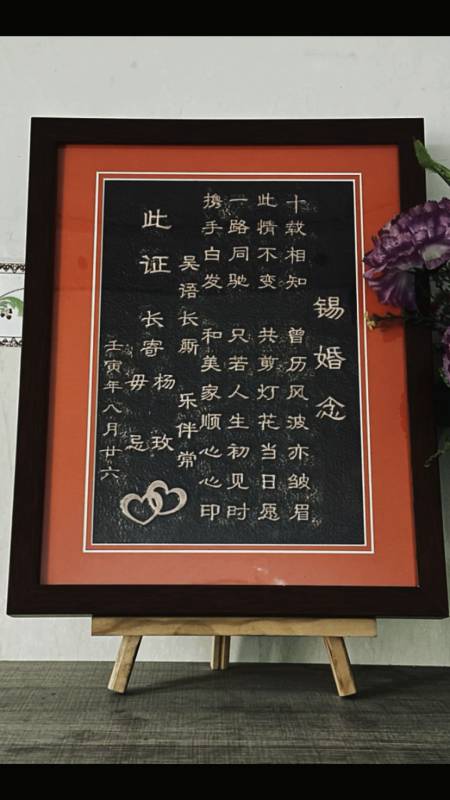 锡婚念
十载相知 曾历风波亦皱眉
此情不变 共剪灯花当日愿
一路同驰 只若人生初见时
携手白发 和美家顺心心印
吴语长厮 乐伴常
此证 长寄
杨 玫
毋 忌
壬寅年八月廿六